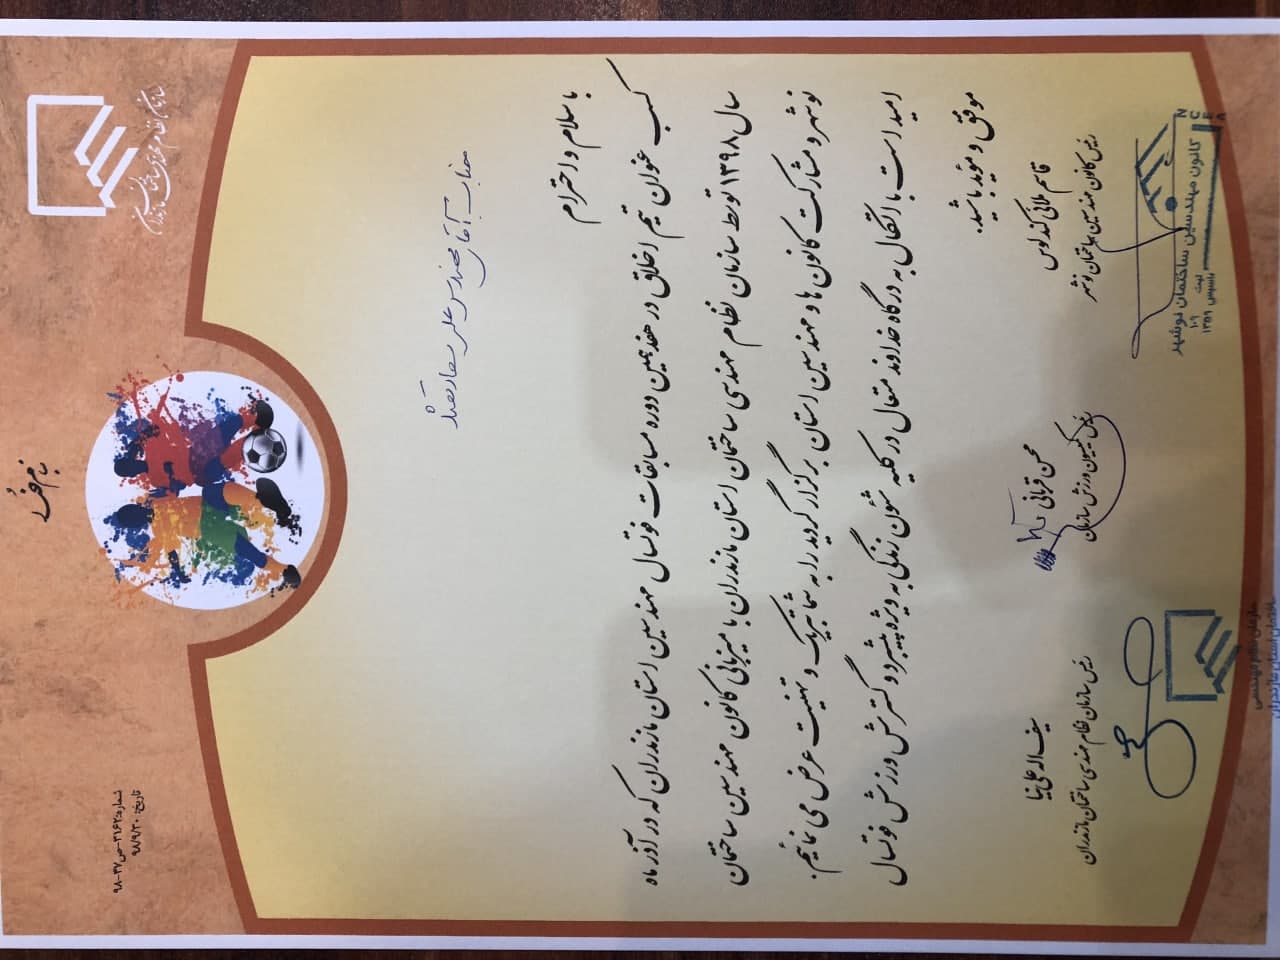 بنام خدا
سازمان نظام مهندسی ساختمان مازندران
شماره: ۳۱۶۲-ص-۳۷-۹۸
تاریخ: ۹۸/۹/۳۰
جناب آقای مهندس علی
با سلام و احترام
کسب عنوان تیم اخلاق در هفدهمین دوره مسابقات فوتسال مهندسین استان مازندران که در آذر ماه
سال ۱۳۹۸ توسط سازمان نظام مهندسی ساختمان استان مازندران با میزبانی کانون مهندسین ساختمان
نوشهر و مشارکت کانون ها و مهندسین استان برگزار گردید را به شما تبریک و تهنیت عرض می نمائیم.
امید است با اتکال به درگاه خداوند متعال در کلیه شئون زندگی به ویژه پیشبرد و گسترش ورزش فوتسال
موفق و مؤید باشید.
قاسم ملائی کندلوس
رئیس کانون مهندسین ساختمان نوشهر
محسن قربانی
رئیس کمیسیون ورزش سازمان
سیف اله علی نیا
رئیس سازمان نظام مهندسی ساختمان مازندران
N C E A
کانون مهندسین ساختمان نوشهر
ثبت ۱۰۹
تاسیس ۱۳۵۹
سازمان نظام مهندسی
ساختمان استان مازندران